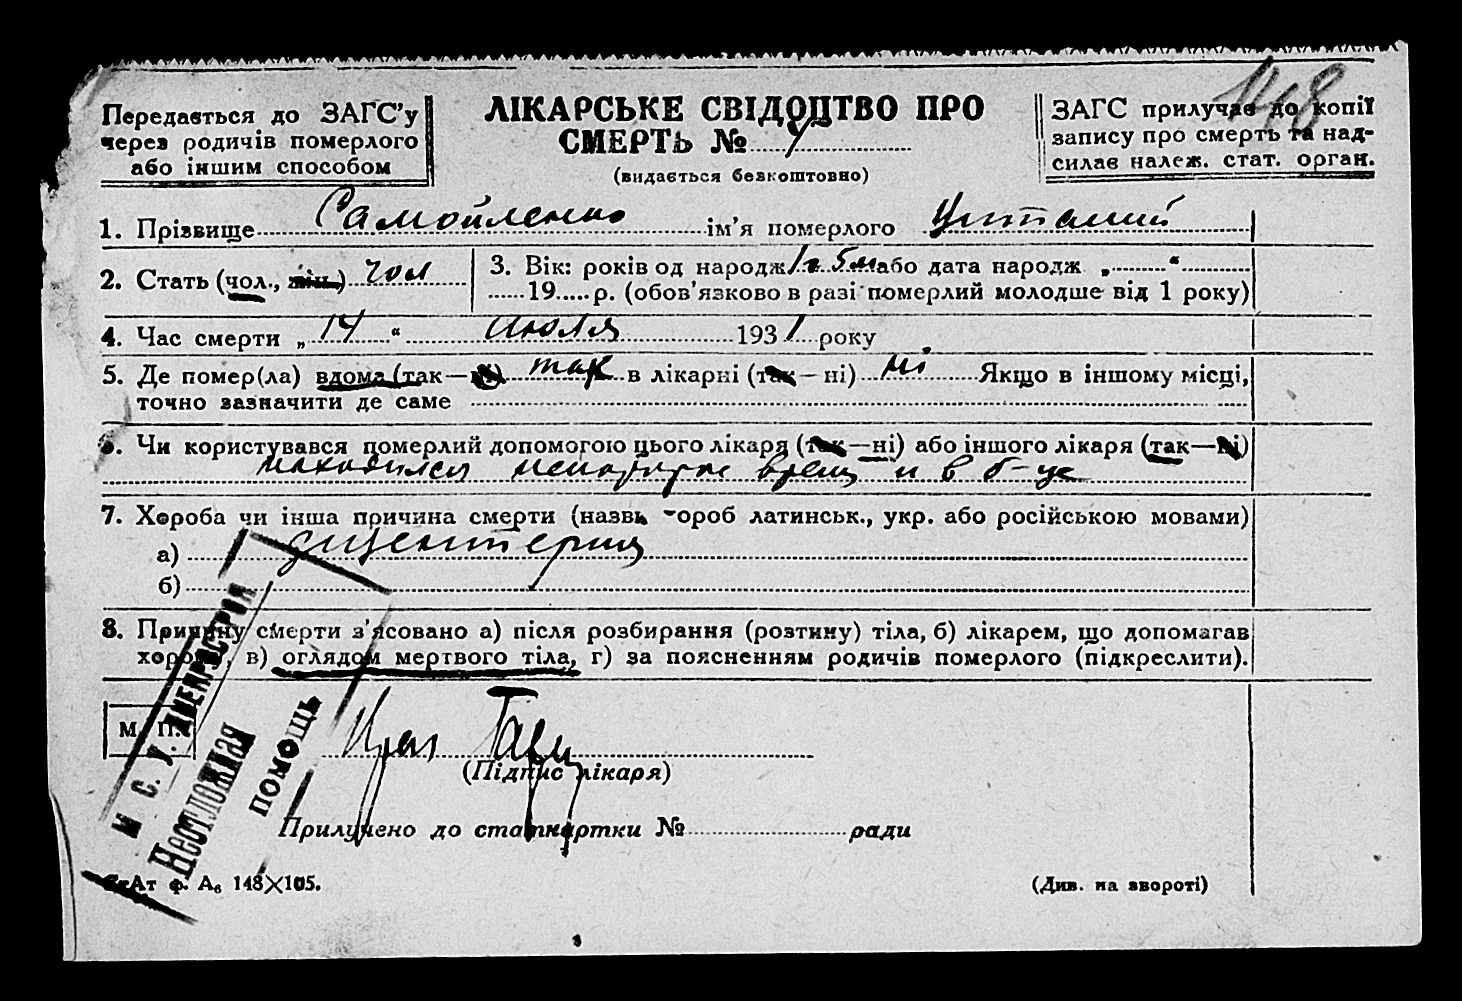 148
Передається до ЗАГС'у
через родичів померлого
або іншим способом
ЛІКАРСЬКЕ СВІДОЦТВО ПРО
СМЕРТЬ №
(видається безкоштовно)
ЗАГС прилучає до копії
запису про смерть та над-
силає належ. стат. орган.
1. Прізвище Самойленко ім'я померлого
2. Стать (чол., жін.) чол
3. Вік: років од народж 1 г 5 м або дата народж „ “
19 р. (обов'язково в разі померлий молодше від 1 року)
4. Час смерти „ 14 “ июля 1931 року
5. Де помер(ла) вдома (так—ні) так в лікарні (так—ні) ні Якщо в іншому місці,
точно зазначити де саме
6. Чи користувався померлий допомогою цього лікаря (так—ні) або іншого лікаря (так—ні)
находился некоторое время и в б-це
7. Хороба чи інша причина смерти (назви хороб латинськ., укр. або російською мовами)
а) дизентерия
б)
8. Причину смерти з'ясовано а) після розбирання (розтину) тіла, б) лікарем, що допомагав
хорому, в) оглядом мертвого тіла, г) за поясненням родичів померлого (підкреслити).
М. П.
М С. У. ДНЕПРОСТРОЯ
Неотложная
помощь
(Підпис лікаря)
Прилучено до статкартки № ради
СтАт ф. А₆ 148×105.
(Див. на звороті)